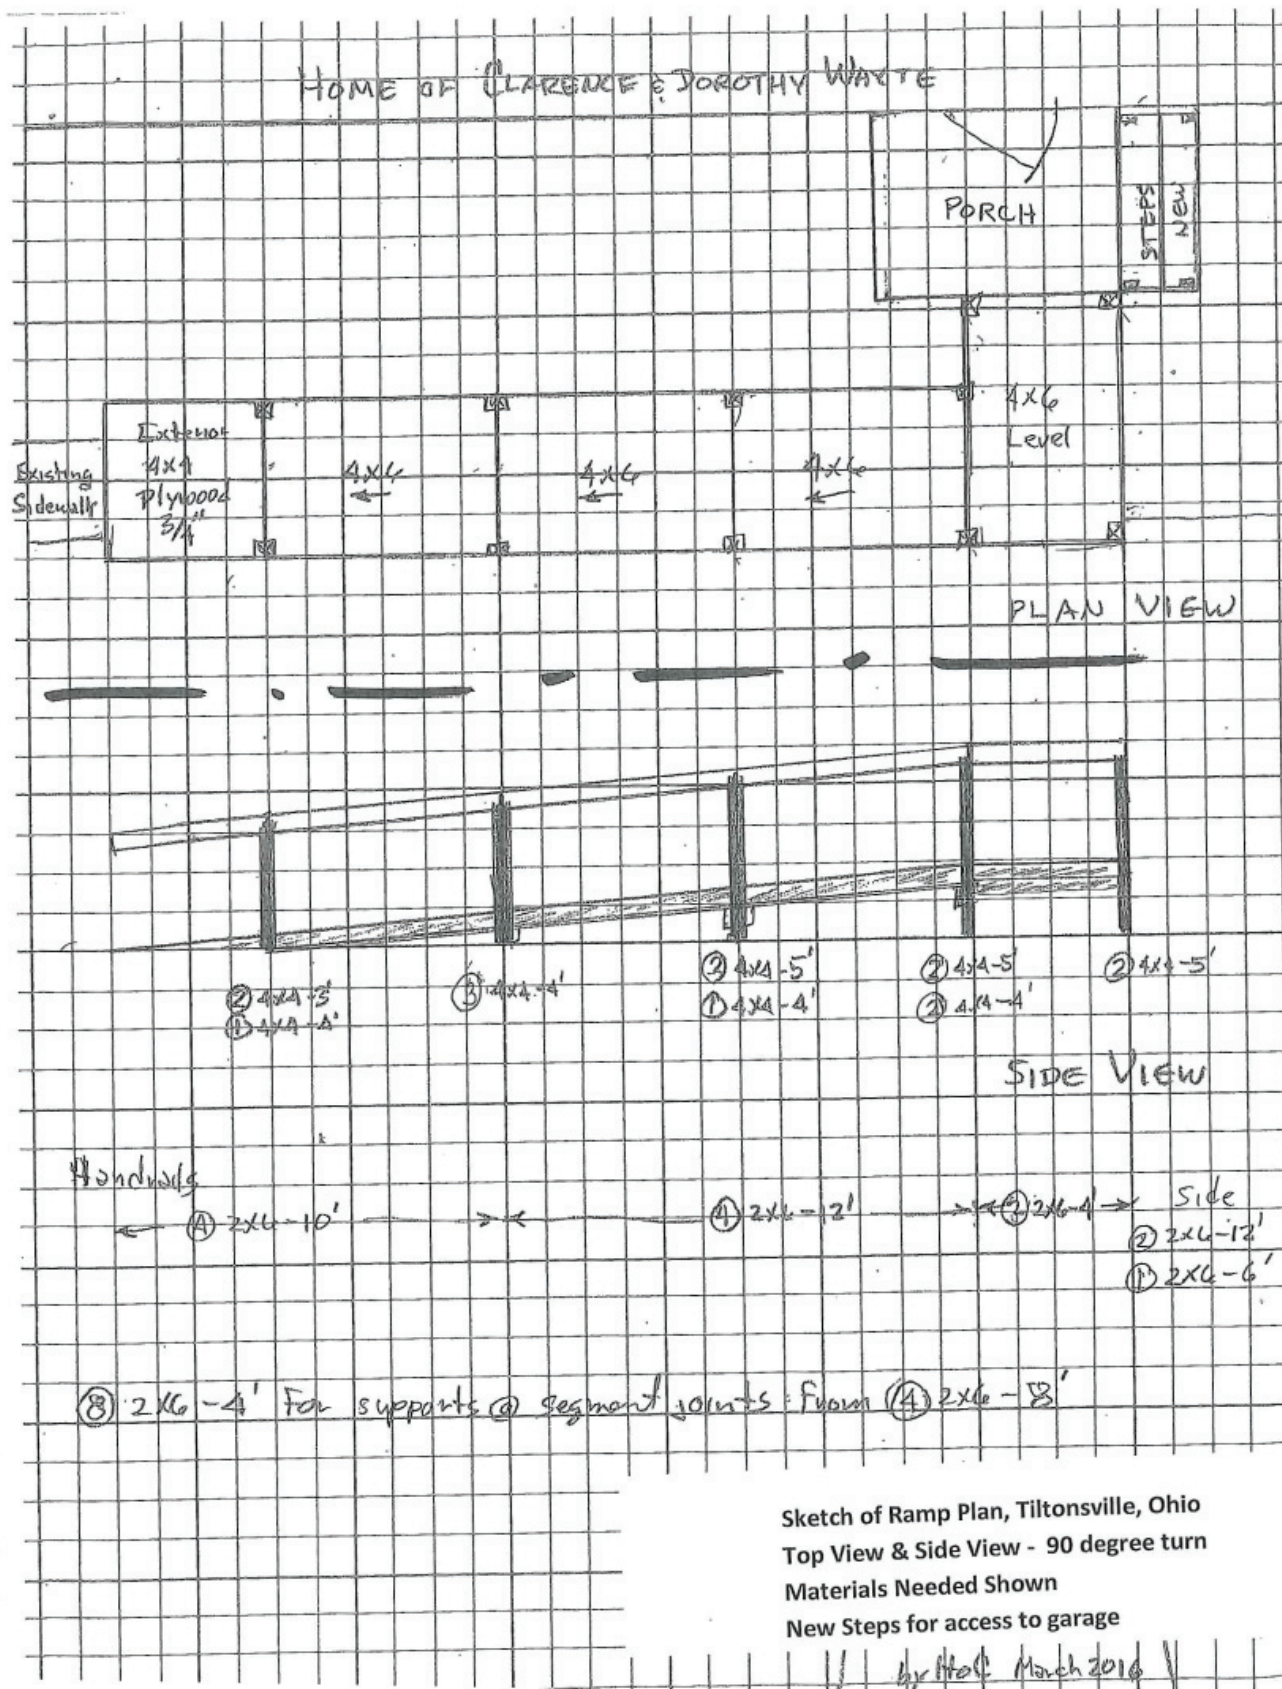 HOME OF CLARENCE & DOROTHY WAYTE
PORCH
STEPS
NEW
4x6
Level
Exterior
4x4
plywood
3/4"
Existing
Sidewalk
4x6
4x6
4x6
PLAN VIEW
② 4x4-3'
① 4x4-4'
③ 4x4-4'
③ 4x4-5'
① 4x4-4'
② 4x4-5'
② 4x4-4'
② 4x4-5'
SIDE VIEW
Handrails
④ 2x6-10'
④ 2x6-12'
③ 2x6-4'
Side
② 2x6-12'
① 2x6-6'
⑧ 2x6-4' For supports @ segment joints From ④ 2x6-8'
Sketch of Ramp Plan, Tiltonsville, Ohio
Top View & Side View - 90 degree turn
Materials Needed Shown
New Steps for access to garage
by March 2016